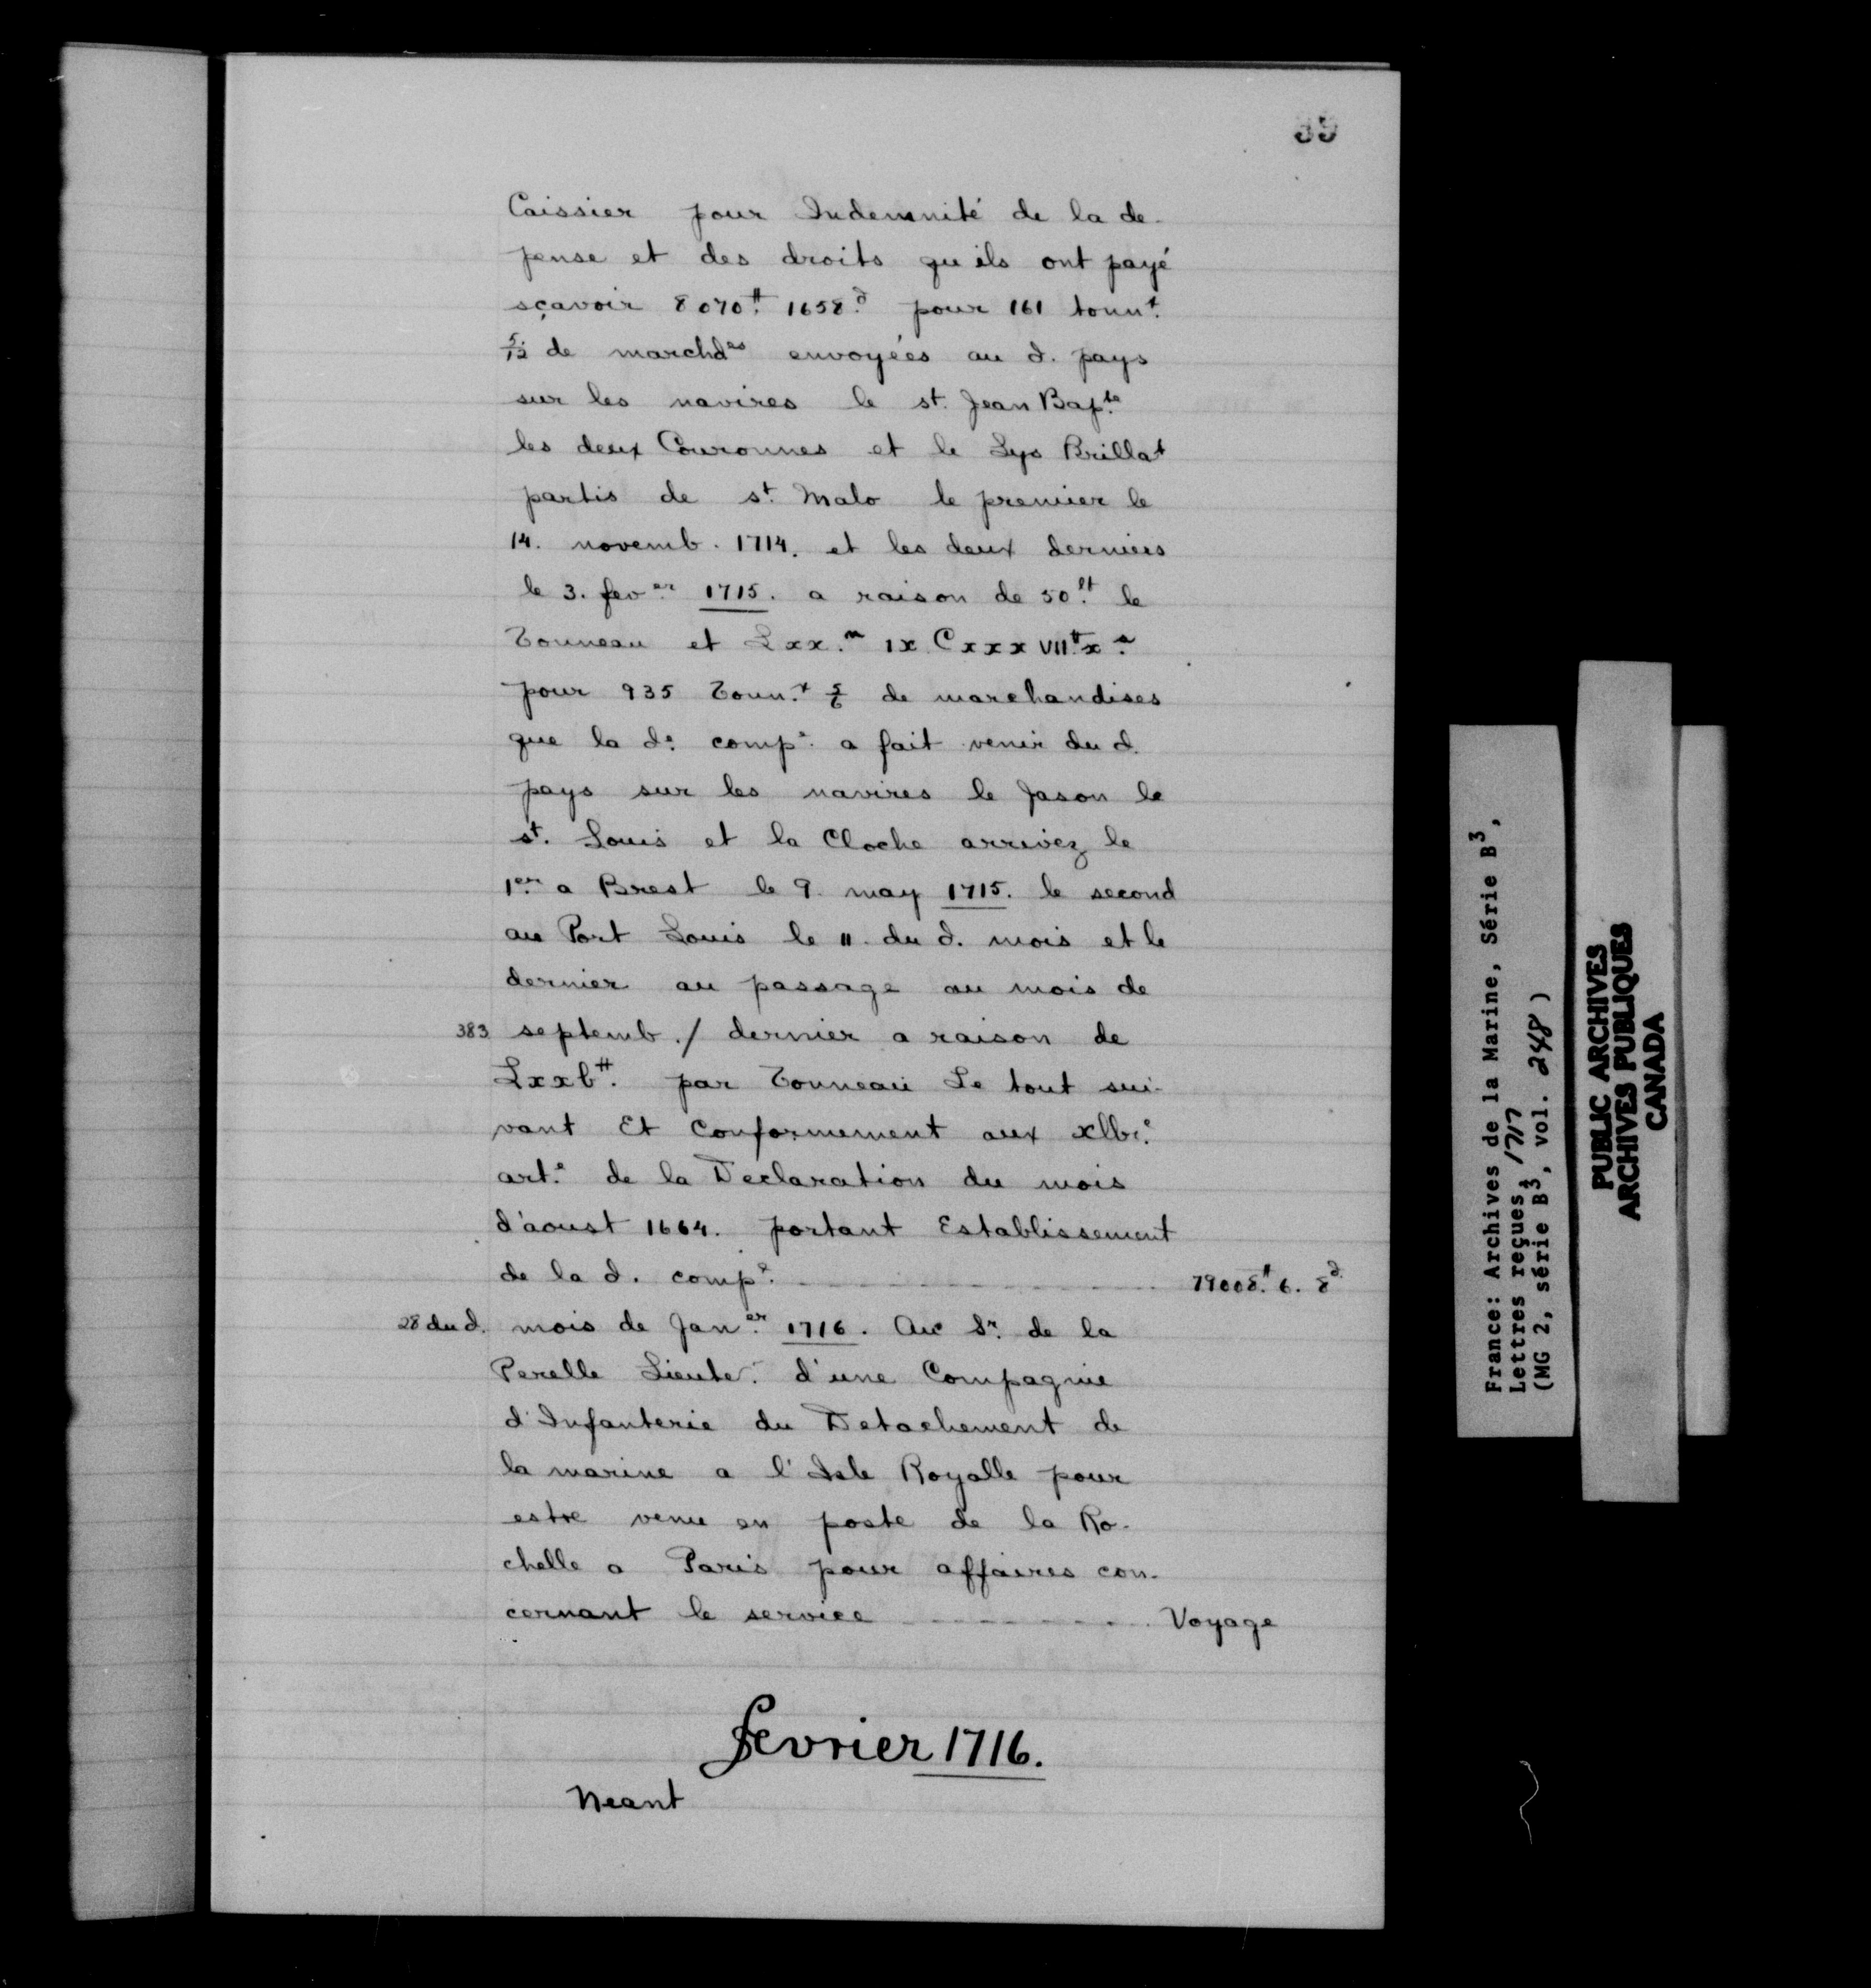 35
Caissier pour Indemnité de la de-
pense et des droits qu'ils ont payé
sçavoir 8070.# 1658.d pour 161 tonn.x
5/12 de marchd.es envoyées au d. pays
sur les navires le st. Jean Bap.te
les deux Couronnes et le Lys Brillat
partis de st. Malo le premier le
14. novemb. 1714. et les deux derniers
le 3. fev.er 1715. a raison de 50.lt le
Tonneau et Lxx.m ix Cxxx VII.#x.s
pour 935 Tonn.x 5/6 de marchandises
que la d.e comp.e a fait venir du d.
pays sur les navires le Jason le
st. Louis et la Cloche arrivez le
1.er a Brest le 9. may 1715. le second
au Port Louis le 11. du d. mois et le
dernier au passage au mois de
383 septemb./ dernier a raison de
Lxxb.# par Tonneau Le tout sui-
vant Et Conformement aux xlbi.e
art.e de la Declaration du mois
d'aoust 1664. portant Establissement
de la d. comp.e 79008.# 6. 8.d
28 du d. mois de Jan.er 1716. Au Sr. de la
Perelle Lieute. d'une Compagnie
d'Infanterie du Detachement de
la marine a l'Isle Royalle pour
estre venu en poste de la Ro-
chelle a Paris pour affaires con-
cernant le service Voyage
fevrier 1716.
Neant
France: Archives de la Marine, Série B3,
Lettres reçues, 1717
(MG 2, série B3, vol. 248)
PUBLIC ARCHIVES
ARCHIVES PUBLIQUES
CANADA